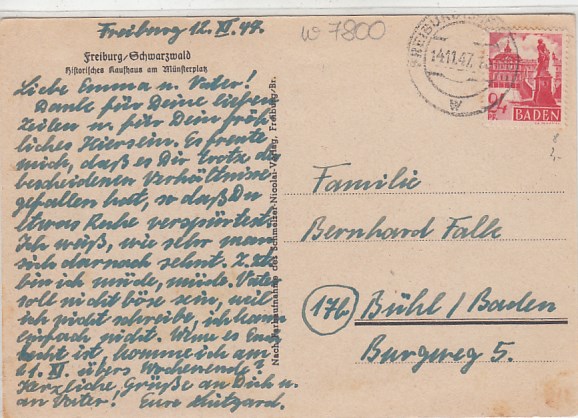 Freiburg 12. XI. 47.
W 7800
Freiburg/Schwarzwald
Historisches Kaufhaus am Münsterplatz
Liebe Emma u. Vater!
Danke für Deine lieben
Zeilen u. für Dein fröh-
liches Hiersein. Es freute
mich, daß es Dir trotz der
bescheidenen Verhältnisse
gefallen hat, so daß Du
etwas Ruhe verspürtest.
Ich weiß, wie sehr man
sich darnach sehnt. Z. Zt.
bin ich müde, müde. Vater
soll nicht böse sein, weil
ich nicht schreibe, ich kann
einfach nicht. Wenn es Euch
recht ist, komme ich am
XI. übers Wochenende?
Herzliche Grüße an Dich u.
an Vater! Eure
Nach Farbaufnahme des Schmelzer-Nicolai-Verlag, Freiburg/Br.
FREIBURG
14.11.47
W
24
BADEN
Familie
Bernhard Falk
(17b) Bühl / Baden
Burgweg 5.